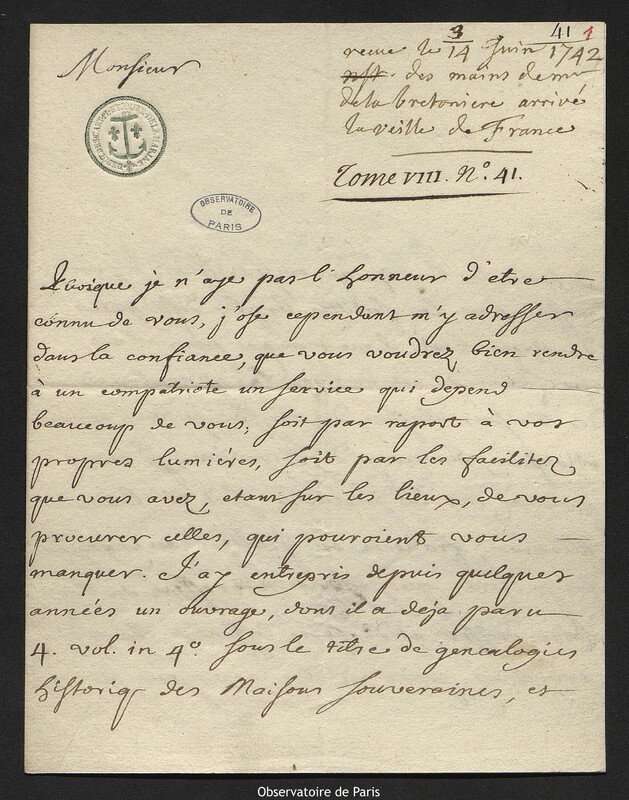 3 41 1
Monsieur
recue le 14 Juin 1742
des mains de mr
de la bretoniere arrivé
la veille de France
Tome VIII. N.o 41.
OBSERVATOIRE
DE
PARIS
Quoique je n'aye pas l'honneur d'etre
connu de vous, j'ose cependant m'y adresser
dans la confiance, que vous voudrez bien rendre
à un compatriote un service qui depend
beaucoup de vous, soit par raport à vos
propres lumiéres, soit par les facilitez
que vous avez, etant sur les lieux, de vous
procurer celles, qui pouroient vous
manquer. J'ay entrepris depuis quelques
années un ouvrage, dont il a deja paru
4. vol. in 4.o sous le titre de genealogies
historiq des Maisons souveraines, et
Observatoire de Paris